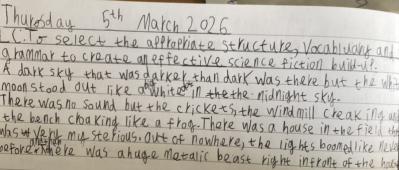 Thursday 5th March 2026
L.C: To select the appropriate structure, vocabulary and
grammar to create an effective science fiction build-up.
A dark sky that was darker than dark was there but the whit
moon stood out like white in the midnight sky.
There was no sound but the crickets, the windmill creaking an
the bench choaking like a frog. There was a house in the field th
was very mysterious. Out of nowhere, the lights boomed like neve
before. There was a huge metalic beast right infront of the hous